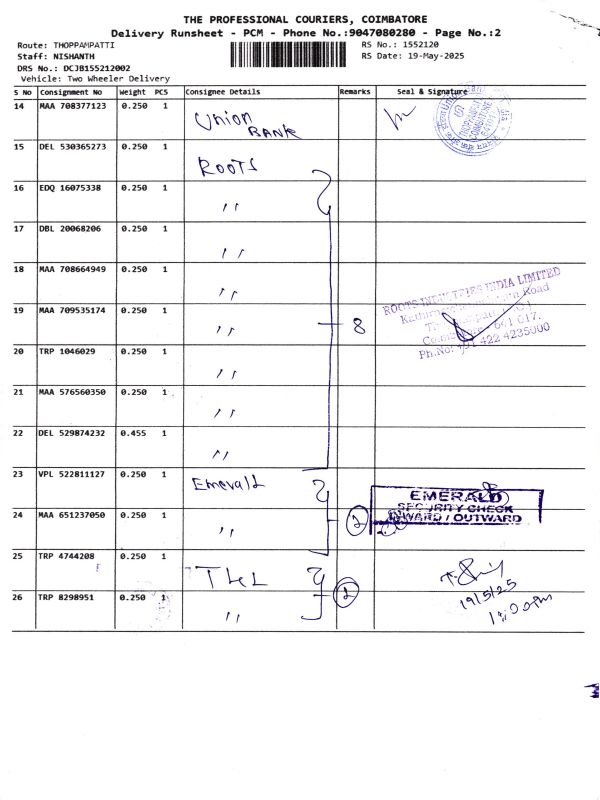 THE PROFESSIONAL COURIERS, COIMBATORE
Delivery Runsheet - PCM - Phone No.:9047080280 - Page No.:2
Route: THOPPAMPATTI
RS No.: 1552120
Staff: NISHANTH
RS Date: 19-May-2025
DRS No.: DCJB155212002
Vehicle: Two Wheeler Delivery
S No Consignment No Weight PCS Consignee Details Remarks Seal & Signature
14 MAA 708377123 0.250 1 Union BANK
15 DEL 530365273 0.250 1 ROOTS
16 EDQ 16075338 0.250 1 ״
17 DBL 20068206 0.250 1 ״
18 MAA 708664949 0.250 1 ״
19 MAA 709535174 0.250 1 ״ 8
ROOTS INDUSTRIES INDIA LIMITED
Road
641 017.
Ph.No: +91 422 4235000
20 TRP 1046029 0.250 1 ״
21 MAA 576560350 0.250 1 ״
22 DEL 529874232 0.455 1 ״
23 VPL 522811127 0.250 1 Emerald
EMERALD
SECURITY CHECK
INWARD / OUTWARD
24 MAA 651237050 0.250 1 ״ 2
25 TRP 4744208 0.250 1
26 TRP 8298951 0.250 1 ״ 2
19/5/25
1:00pm